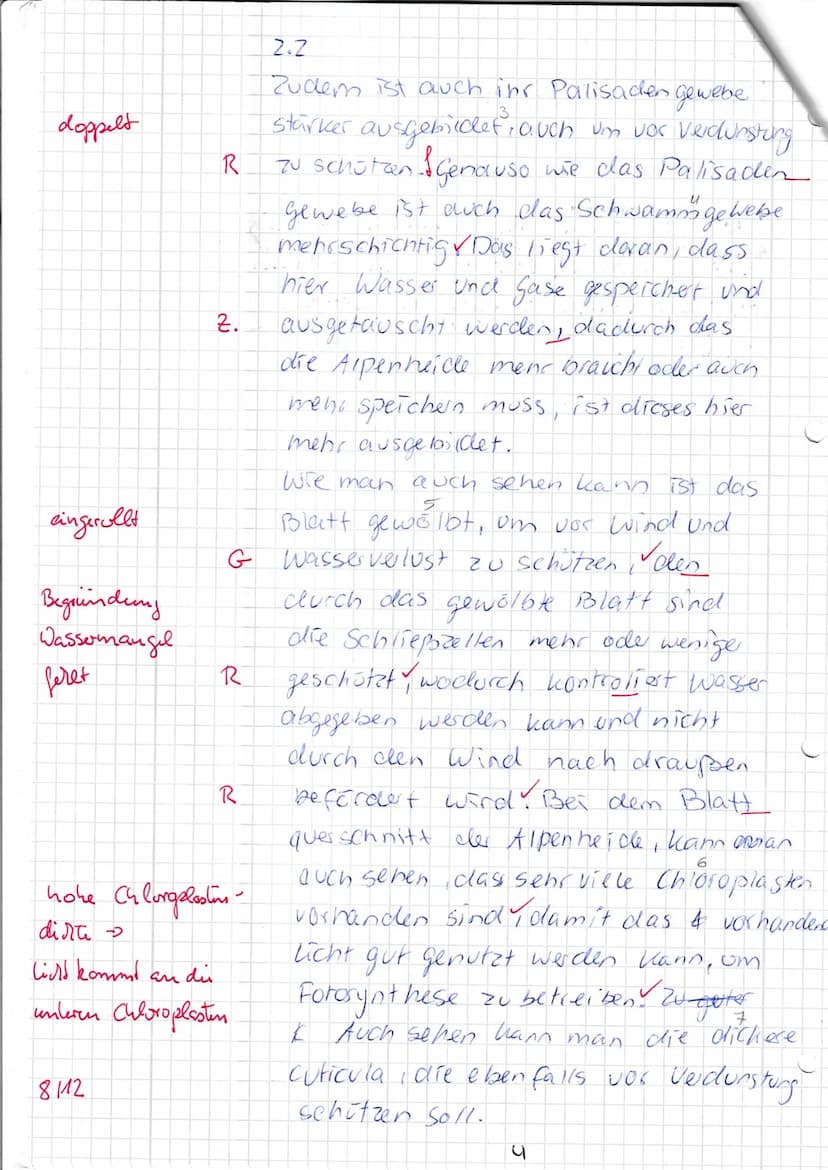 2.2
Zudem ist auch ihr Palisadengewebe
doppelt
3
stärker ausgebildet, auch um vor Verdunstung
R
zu schützen. Genauso wie das Palisaden
4
gewebe ist auch das Schwammgewebe
mehrschichtig. Das liegt daran, dass
hier Wasser und Gase gespeichert und
Z.
ausgetauscht werden, dadurch das
die Alpenheide mehr braucht oder auch
mehr speichern muss, ist dieses hier
mehr ausgebildet.
Wie man auch sehen kann ist das
eingerollt
5
Blatt gewölbt, um vor Wind und
G
Wasserverlust zu schützen, den
Begründung
durch das gewölbte Blatt sind
Wassermangel
die Schließzellen mehr oder weniger
fehlt
R
geschützt, wodurch kontroliert Wasser
abgegeben werden kann und nicht
durch den Wind nach draußen
R
befördert wird. Bei dem Blatt
querschnitt der Alpenheide, kann man
6
auch sehen, dass sehr viele Chloroplasten
hohe Chloroplasten-
vorhanden sind, damit das vorhandene
dichte →
Licht gut genutzt werden kann, um
Licht kommt an die
Fotosynthese zu betreiben. Zu guter
unteren Chloroplasten
7
Auch sehen kann man die dichere
Cuticula, die ebenfalls vor Verdunstung
8/12
schützen soll.
4